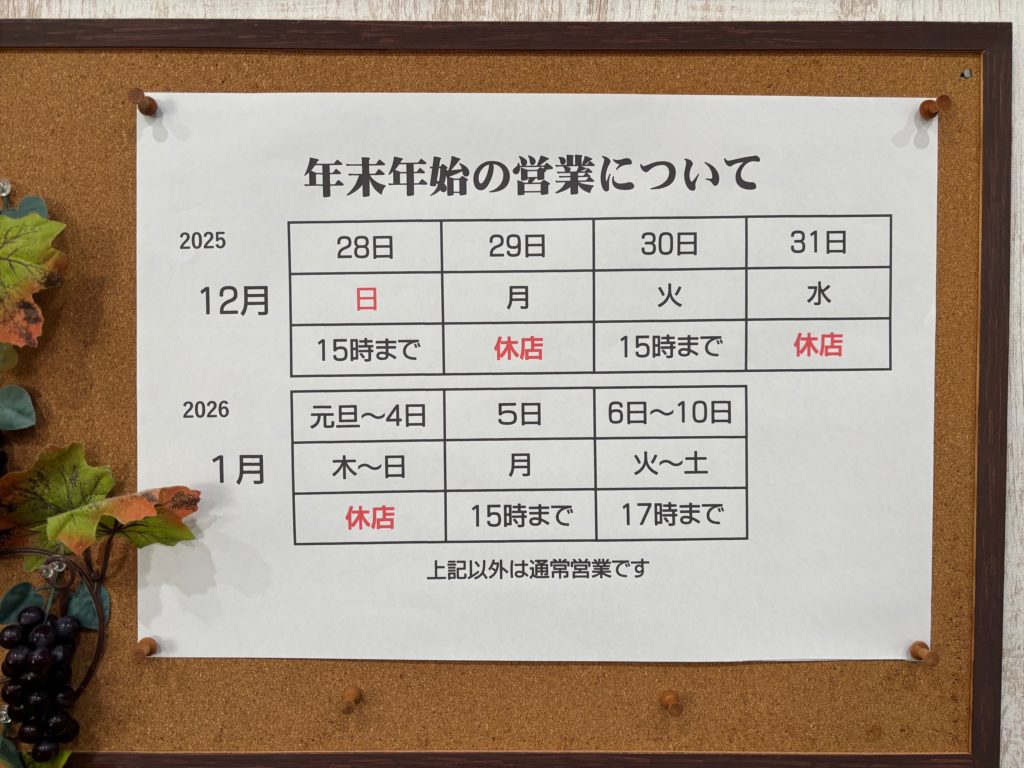 年末年始の営業について
2025
12月
28日 29日 30日 31日
日 月 火 水
15時まで 休店 15時まで 休店
2026
1月
元旦〜4日 5日 6日〜10日
木〜日 月 火〜土
休店 15時まで 17時まで
上記以外は通常営業です